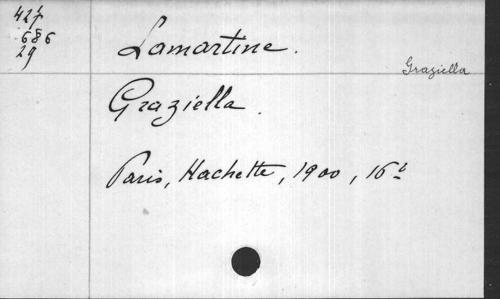 427
686
29
Lamartine.
Graziella
Graziella.
Paris, Hachette, 1900, 16º